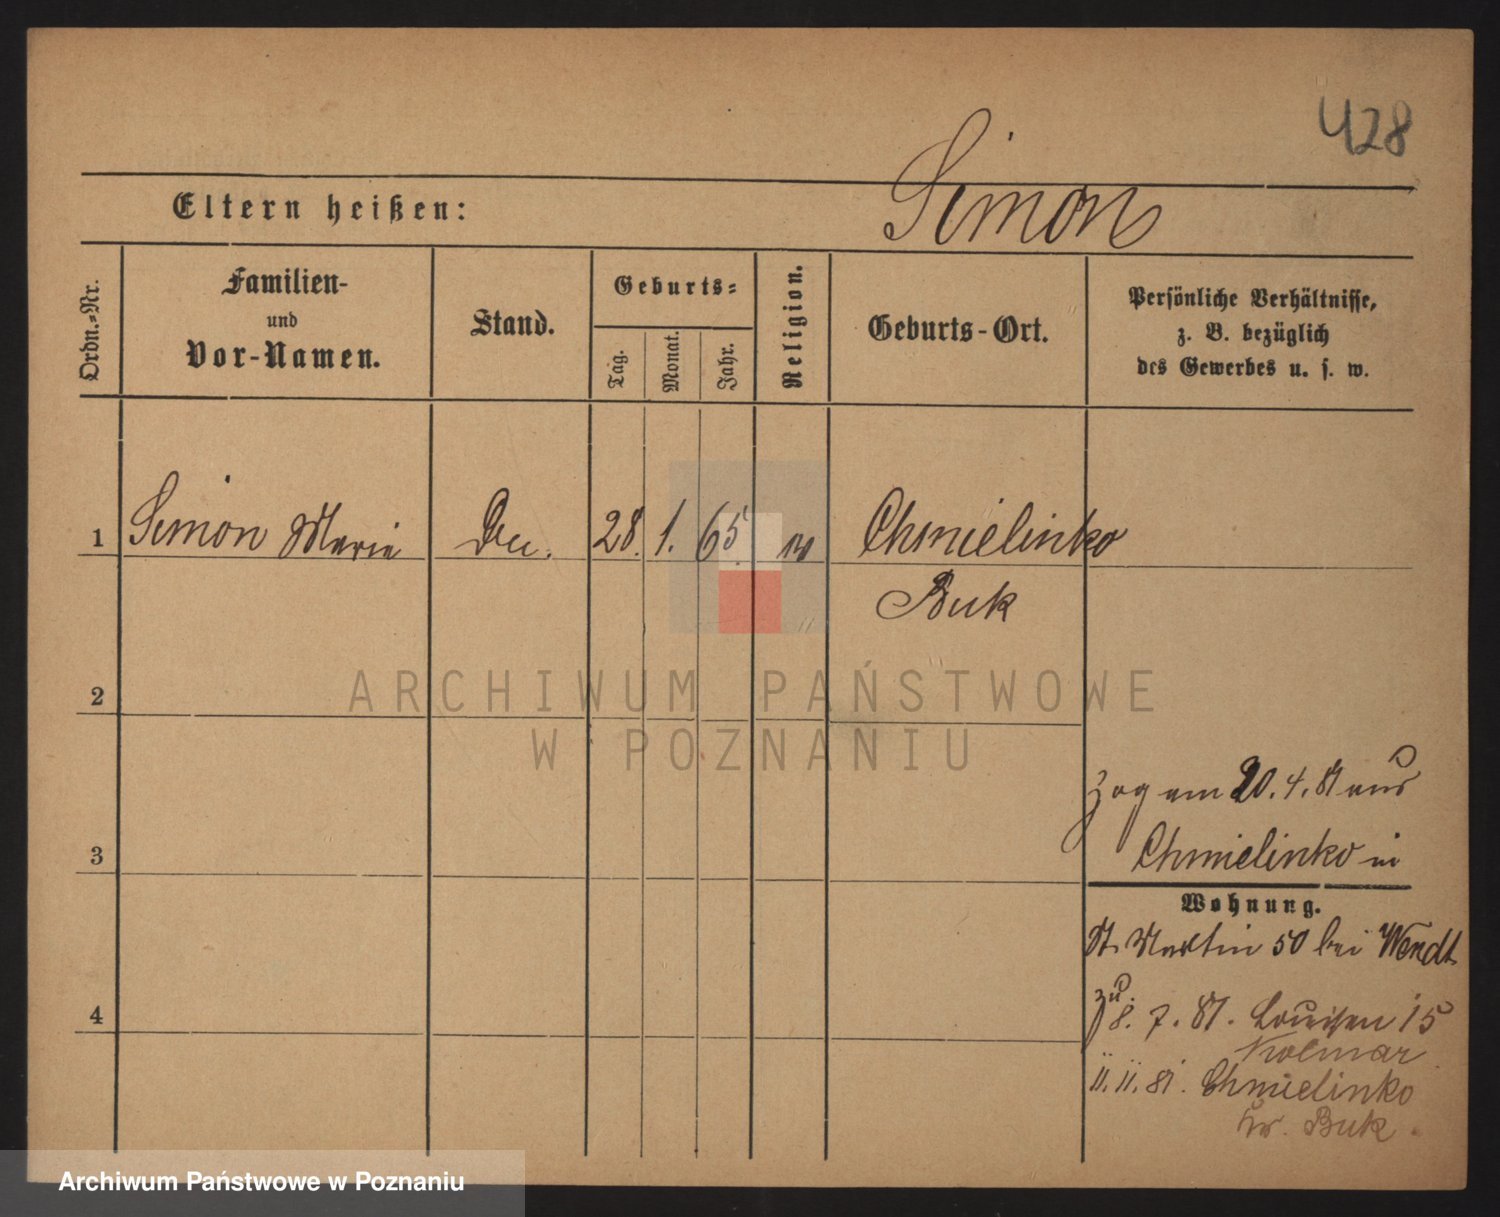 428
Simon
Eltern heißen:
Ordn.-Nr.
Familien-
und
Vor-Namen.
Stand.
Geburts-
Tag.
Monat.
Jahr.
Religion.
Geburts-Ort.
Persönliche Verhältnisse,
z. B. bezüglich
des Gewerbes u. s. w.
1 Simon Marie 28. 1. 65 Chmielinko
Buk
ARCHIWUM PAŃSTWOWE
W POZNANIU
2
zog am 20. 4. 81 aus
3
Chmielinko in
Wohnung.
St. Martin 50 bei Wendt
4
8. 7. 81. Louisen 15
Kolmar
11. 11. 81. Chmielinko
Kr. Buk.
Archiwum Państwowe w Poznaniu